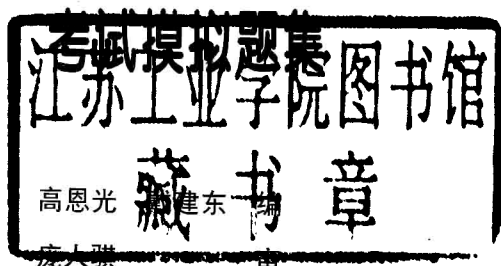 考试模拟题集
江苏工业学院图书馆
藏书章
高恩光 建东 编